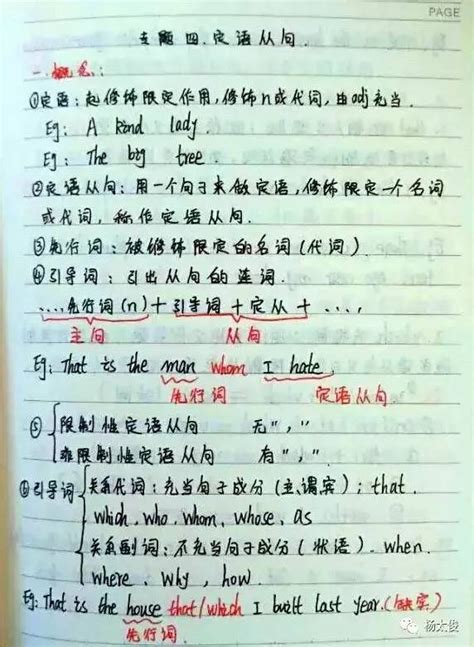 PAGE
专题四.定语从句.
一.概念:
①定语:起修饰限定作用,修饰n或代词,由adj充当.
Eg: A kind lady.
Eg: The big tree.
②定语从句:用一个句子来做定语,修饰限定一个名词
或代词,称作定语从句.
③先行词:被修饰限定的名词(代词).
④引导词:引出从句的连词.
....先行词(n)+引导词+定从+....,
主句 从句
Eg: That is the man whom I hate.
先行词 定语从句
⑤ 限制性定语从句 无","
非限制性定语从句 有",".
⑥引导词 关系代词:充当句子成分(主.谓宾);that.
which, who, whom, whose, as
关系副词:不充当句子成分(状语).when.
where, why, how.
Eg: That is the house that/which I built last year.(缺宾)
先行词.
杨太俊